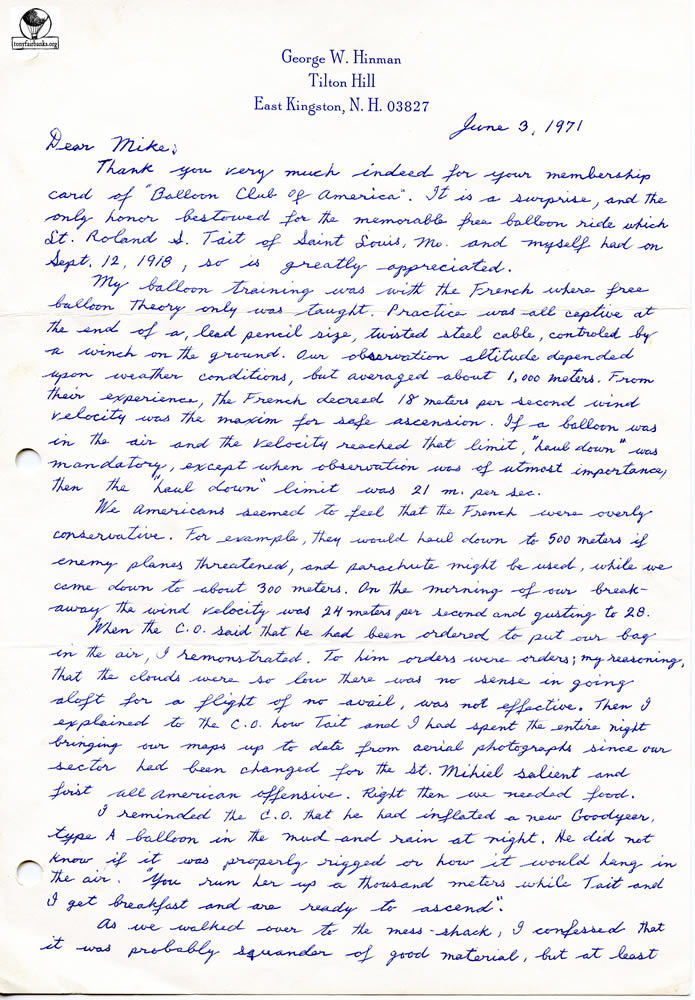 tonyfairbanks.org
George W. Hinman
Tilton Hill
East Kingston, N. H. 03827
June 3, 1971
Dear Mike:
Thank you very much indeed for your membership
card of "Balloon Club of America". It is a surprise, and the
only honor bestowed for the memorable free balloon ride which
Lt. Roland S. Tait of Saint Louis, Mo. and myself had on
Sept. 12, 1918, so is greatly appreciated.
My balloon training was with the French where free
balloon theory only was taught. Practice was all captive at
the end of a, lead pencil size, twisted steel cable, controled by
a winch on the ground. Our observation altitude depended
upon weather conditions, but averaged about 1,000 meters. From
their experience, the French decreed 18 meters per second wind
velocity was the maxim for safe ascension. If a balloon was
in the air and the velocity reached that limit, "haul down" was
mandatory, except when observation was of utmost importance,
then the "haul down" limit was 21 m. per sec.
We Americans seemed to feel that the French were overly
conservative. For example, they would haul down to 500 meters if
enemy planes threatened, and parachute might be used, while we
came down to about 300 meters. On the morning of our break-
away the wind velocity was 24 meters per second and gusting to 28.
When the C.O. said that he had been ordered to put our bag
in the air, I remonstrated. To him orders were orders; my reasoning,
that the clouds were so low there was no sense in going
aloft for a flight of no avail, was not effective. Then I
explained to the C.O. how Tait and I had spent the entire night
bringing our maps up to date from aerial photographs since our
sector had been changed for the St. Mihiel salient and
first all American offensive. Right then we needed food.
I reminded the C.O. that he had inflated a new Goodyear,
type A balloon in the mud and rain at night. He did not
know if it was properly rigged or how it would hang in
the air. "You run her up a thousand meters while Tait and
I get breakfast and are ready to ascend".
As we walked over to the mess-shack, I confessed that
it was probably squander of good material, but at least